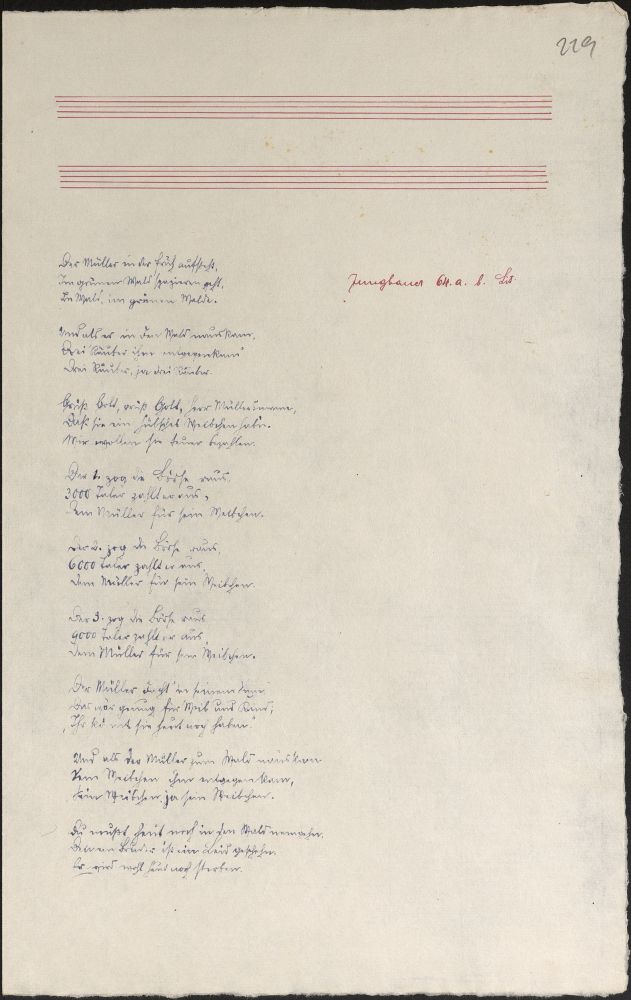 229
Jungbauer 64. a. b. Lit
Der Müller in der Früh aufsteht,
Im grünen Wald spazieren geht,
Im Wald, im grünen Walde.
Und als er in den Wald naus kam,
Drei Räuber ihm entgegenkam
Drei Räuber, ja drei Räuber.
Grüß Gott, grüß Gott, Herr Müllersmann,
Daß sie ein hübsches Weibchen habn.
Wir wollen sie teuer bezahlen.
Der 1. zog die Börse raus,
3000 Taler zahlt er aus,
Dem Müller für sein Weibchen.
Der 2. zog die Börse raus,
6000 Taler zahlt er aus,
Dem Müller für sein Weibchen.
Der 3. zog die Börse raus
9000 Taler zahlt er aus,
Dem Müller für sein Weibchen.
Der Müller dacht in seinem Sinn,
Das wär genug für Weib und Kind,
"Ihr könnt sie heut noch haben."
Und als der Müller zum Wald nauskam
Sein Weibchen ihm entgegen kam,
Sein Weibchen, ja sein Weibchen.
Du mußt heut noch in den Wald
Deinem Bruder ist ein Leid geschehn.
Er wird wohl heut noch sterben.